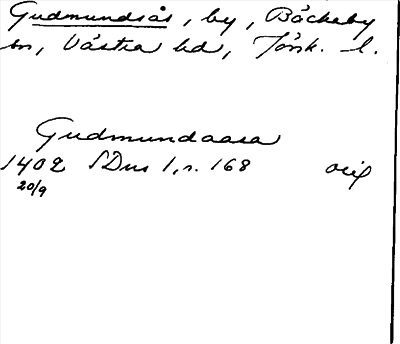 Gudmundsås, by, Bäckeby
sn, Västra hd, Jönk. l.
Gudmundaasa
1402 SDns 1, s. 168 orig
20/9